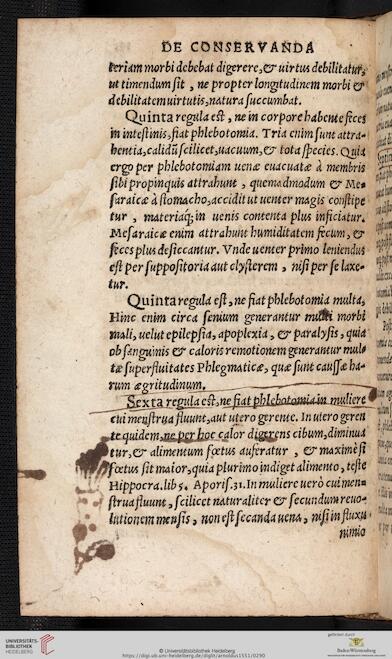 DE CONSERVANDA
teriam morbi debebat digerere, & uirtus debilitatur,
ut timendum sit, ne propter longitudinem morbi &
debilitatem uirtutis, natura succumbat.
Quinta regula est, ne in corpore habente feces
in intestinis, fiat phlebotomia. Tria enim sunt attra-
hentia, calidū scilicet, uacuum, & tota species. Quia
ergo per phlebotomiam uenæ euacuatæ à membris
sibi propinquis attrahunt, quemadmodum & Me-
saraicæ à stomacho, accidit ut uenter magis constipe
tur, materiaq; in uenis contenta plus inficiatur.
Mesaraicæ enim attrahunt humiditatem fecum, &
feces plus desiccantur. Vnde uenter primo leniendus
est per suppositoria aut clysterem, nisi per se laxe-
tur.
Quinta regula est, ne fiat phlebotomia multa,
Hinc enim circa senium generantur multi morbi
mali, uelut epilepsia, apoplexia, & paralysis, quia
ob sanguinis & caloris remotionem generantur mul-
tæ superfluitates Phlegmaticæ, quæ sunt caussæ ha-
rum ægritudinum.
Sexta regula est, ne fiat phlebotomia in muliere
cui menstrua fluunt, aut utero gerente. In utero geren
te quidem, ne per hoc calor digerens cibum, diminua
tur, & alimentum fœtus auferatur, & maximè si
fœtus sit maior, quia plurimo indiget alimento, teste
Hippocra. lib 5. Aporis. 31. In muliere uerò cui men-
strua fluunt, scilicet naturaliter & secundum reuo-
lutionem mensis, non est secanda uena, nisi in fluxu
nimio
UNIVERSITÄTS-
BIBLIOTHEK
HEIDELBERG
© Universitätsbibliothek Heidelberg
https://digi.ub.uni-heidelberg.de/diglit/arnoldus1551/0290
gefördert durch
Baden-Württemberg